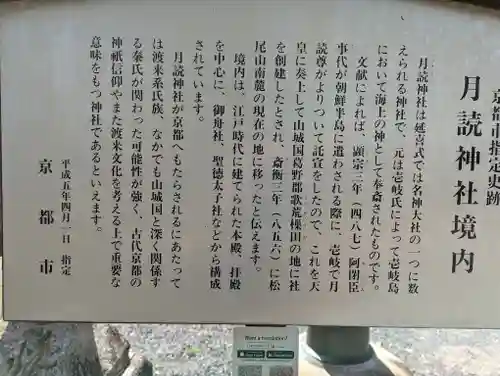 京都市指定史跡
月読神社境内
月読神社は延喜式では名神大社の一つに数
えられる神社で、元は壱岐氏によって壱岐島
において海上の神として奉斎されたものです。
文献によれば、顕宗三年(四八七)阿閉臣
事代が朝鮮半島に遣わされる際に、壱岐で月
読尊がよりついて託宣をしたので、これを天
皇に奏上して山城国葛野郡歌荒樔田の地に社
を創建したとされ、斎衡三年(八五六)に松
尾山南麓の現在の地に移ったと伝えます。
境内は、江戸時代に建てられた本殿、拝殿
を中心に、御舟社、聖徳太子社などから構成
されています。
月読神社が京都へもたらされるにあたって
は渡来系氏族、なかでも山城国と深く関係す
る秦氏が関わった可能性が強く、古代京都の
神祇信仰やまた渡来文化を考える上で重要な
意味をもつ神社であるといえます。
平成五年四月一日 指定
京都市
Need a translation?